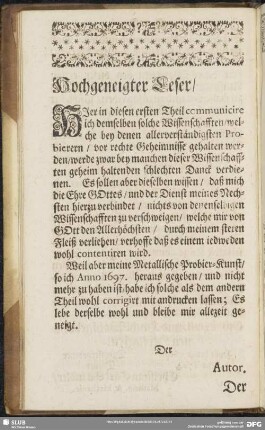 Hochgeneigter Leser/
HIer in diesen ersten Theil communicire
ich demselben solche Wissenschafften/wel-
che bey denen allerverständigsten Pro-
bierern / vor rechte Geheimnisse gehalten wer-
den/werde zwar bey manchen dieser Wissenschaff-
ten geheim haltenden schlechten Danck verdie-
nen. Es sollen aber dieselben wissen / daß mich
die Ehre GOttes/und der Dienst meines Nech-
sten hierzu verbindet / nichts von denenjenigen
Wissenschafften zu verschweigen/ welche mir von
GOtt den Allerhöchsten / durch meinem steten
Fleiß verliehen/ verhoffe daß es einem iedweden
wohl contentiren wird.
Weil aber meine Metallische Probier-Kunst/
so ich Anno 1697. heraus gegeben/ und nicht
mehr zu haben ist/habe ich solche als dem andern
Theil wohl corrigirt mit andrucken lassen; Es
lebe derselbe wohl und bleibe mir allezeit ge-
neigt.
Der
Autor.
Der
SLUB
DFG